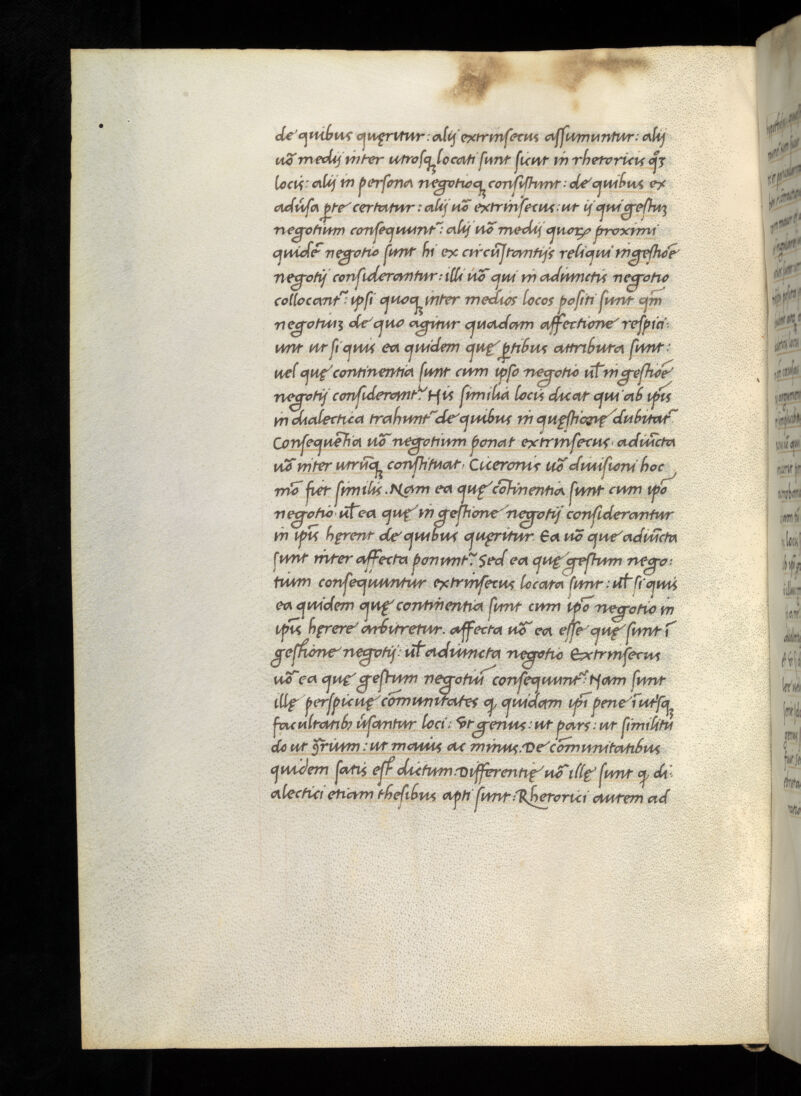 de quibus quęritur: alij extrinsecus assumuntur: alij
uō medij inter utrosqꝫ locati sunt sicut in rhetoricis qꝫ
locis: alij in persona negotioqꝫ consistunt: de quibus ex
aduersa ꝑte certatur: alij uō extrinsecus: ut ij qui gestuꝫ
negotium consequunt᷑: alij uō medij quoꝝ proximi
quidē negotio sunt hi ex circūstantijs reliqui in gestiōe
negotij considerantur: illi uō qui in adiunctis negotio
collocant᷑: ipsi quoqꝫ inter medios locos positi sunt qm̄
negotiuꝫ de quo agitur quadam affectione respici:
unt ut si quis ea quidem quę ꝑtibus attributa sunt:
uel quę continentia sunt cum ipso negotio ul̄ in gestiōe
negotij considerant᷑. His similia locis dicat qui ab ip̄is
in dialectica trahunt᷑ de quibus in quęstionę dubitat᷑
Consequētia uō negotium ponat extrinsecus. adiūcta
uō inter utrūqꝫ constituat. Ciceronis uō diuisioni hoc
mō fiet similis. Nam ea quę cōtinentia sunt cum ip̄o
negotio ul̄ ea quę in gestione negotij considerantur
in ip̄is hęrent de quibus queritur. Ea uō que adiūcta
sunt inter affecta ponunt᷑. Sed ea quę gestum nego:
tium consequuntur extrinsecus locata sunt: ul̄ si quis
ea quidem quę continentia sunt cum ip̄o negotio in
ip̄is hęrere arbitretur. affecta uō ea esse quę sunt ī
gestione negotij: ul̄ adiuncta negotio Extrinsecus
uō ea quę gestum negotiū consequunt᷑. Nam sunt
illę perspicuę cōmunitates ꝙ quidam ip̄i pene ī utsqꝫ
facultatibꝫ uersantur loci: Vt genus: ut pars: ut similitu
do ut ↄ̄rium: ut maius ac minus. De cōmunitatibus
quidem satis est dictum. Differentię uō illę sunt ꝙ di:
alectici etiam thesibus apti sunt: Rhetorici autem ad